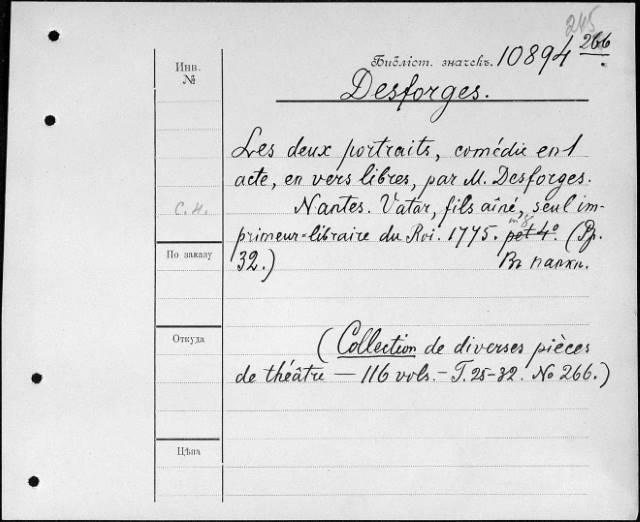 245
Инв.
№
Библіот. значекъ. 10894 266
Desforges.
Les deux portraits, comédie en 1
acte, en vers libres, par M. Desforges.
Nantes. Vatar, fils aîné, seul im-
с. н.
in 8
primeur-libraire du Roi. 1775. pet 4º. (Pp.
По заказу
32.) Въ папкѣ.
Откуда
(Collection de diverses pièces
de théâtre — 116 vols. — T. 25-32. No 266.)
Цѣна